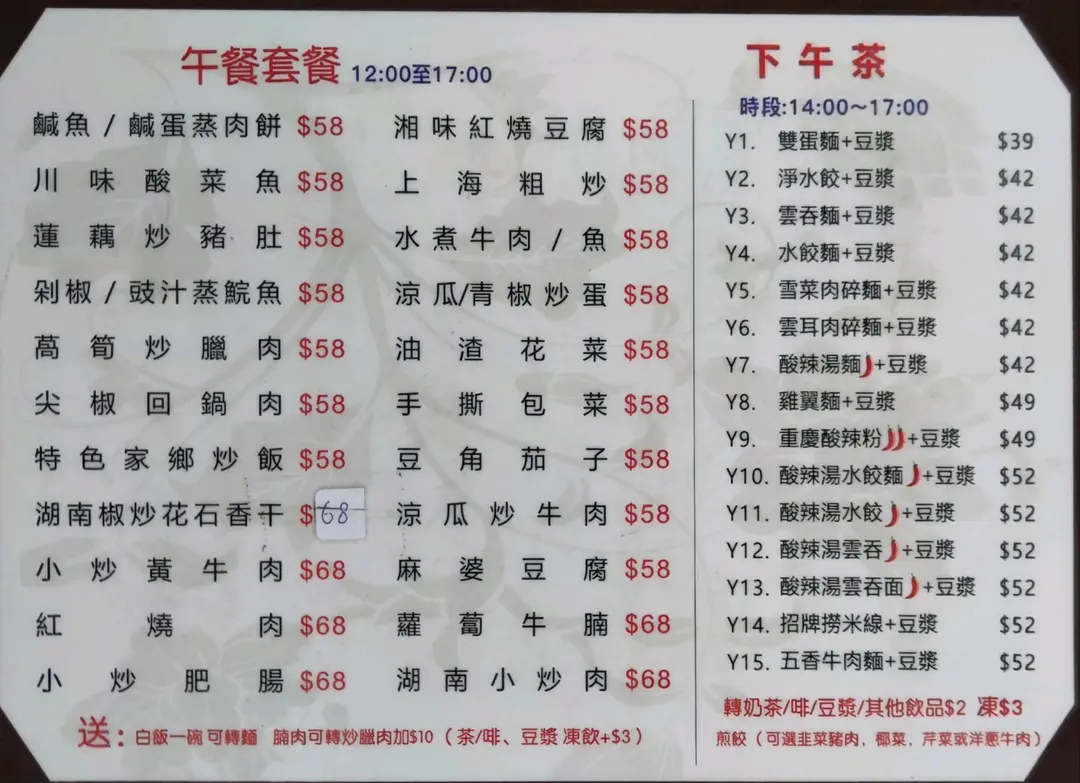 午餐套餐 12:00至17:00
鹹魚/鹹蛋蒸肉餅 $58
川味酸菜魚 $58
蓮藕炒豬肚 $58
剁椒/豉汁蒸鯇魚 $58
萵筍炒臘肉 $58
尖椒回鍋肉 $58
特色家鄉炒飯 $58
湖南椒炒花石香干 $68
小炒黃牛肉 $68
紅燒肉 $68
小炒肥腸 $68
湘味紅燒豆腐 $58
上海粗炒 $58
水煮牛肉/魚 $58
涼瓜/青椒炒蛋 $58
油渣花菜 $58
手撕包菜 $58
豆角茄子 $58
涼瓜炒牛肉 $58
麻婆豆腐 $58
蘿蔔牛腩 $68
湖南小炒肉 $68
送：白飯一碗 可轉麵 腩肉可轉炒臘肉加$10（茶/啡、豆漿 凍飲+$3）
下午茶
時段:14:00～17:00
Y1. 雙蛋麵+豆漿 $39
Y2. 淨水餃+豆漿 $42
Y3. 雲吞麵+豆漿 $42
Y4. 水餃麵+豆漿 $42
Y5. 雪菜肉碎麵+豆漿 $42
Y6. 雲耳肉碎麵+豆漿 $42
Y7. 酸辣湯麵+豆漿 $42
Y8. 雞翼麵+豆漿 $49
Y9. 重慶酸辣粉+豆漿 $49
Y10. 酸辣湯水餃麵+豆漿 $52
Y11. 酸辣湯水餃+豆漿 $52
Y12. 酸辣湯雲吞+豆漿 $52
Y13. 酸辣湯雲吞面+豆漿 $52
Y14. 招牌撈米線+豆漿 $52
Y15. 五香牛肉麵+豆漿 $52
轉奶茶/啡/豆漿/其他飲品$2 凍$3
煎餃（可選韭菜豬肉，椰菜，芹菜或洋蔥牛肉）